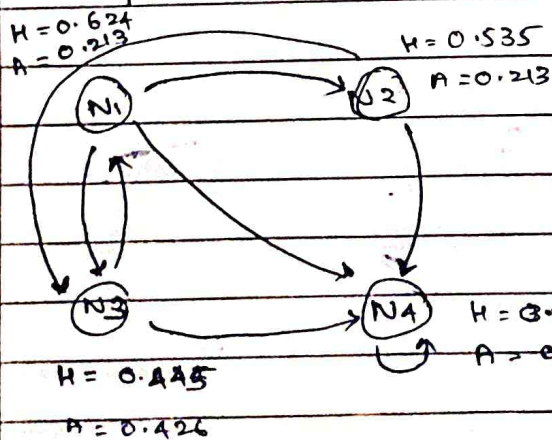 H = 0.624
A = 0.213
H = 0.535
A = 0.213
N1
N2
N3
N4
H =
A =
H = 0.445
A = 0.426